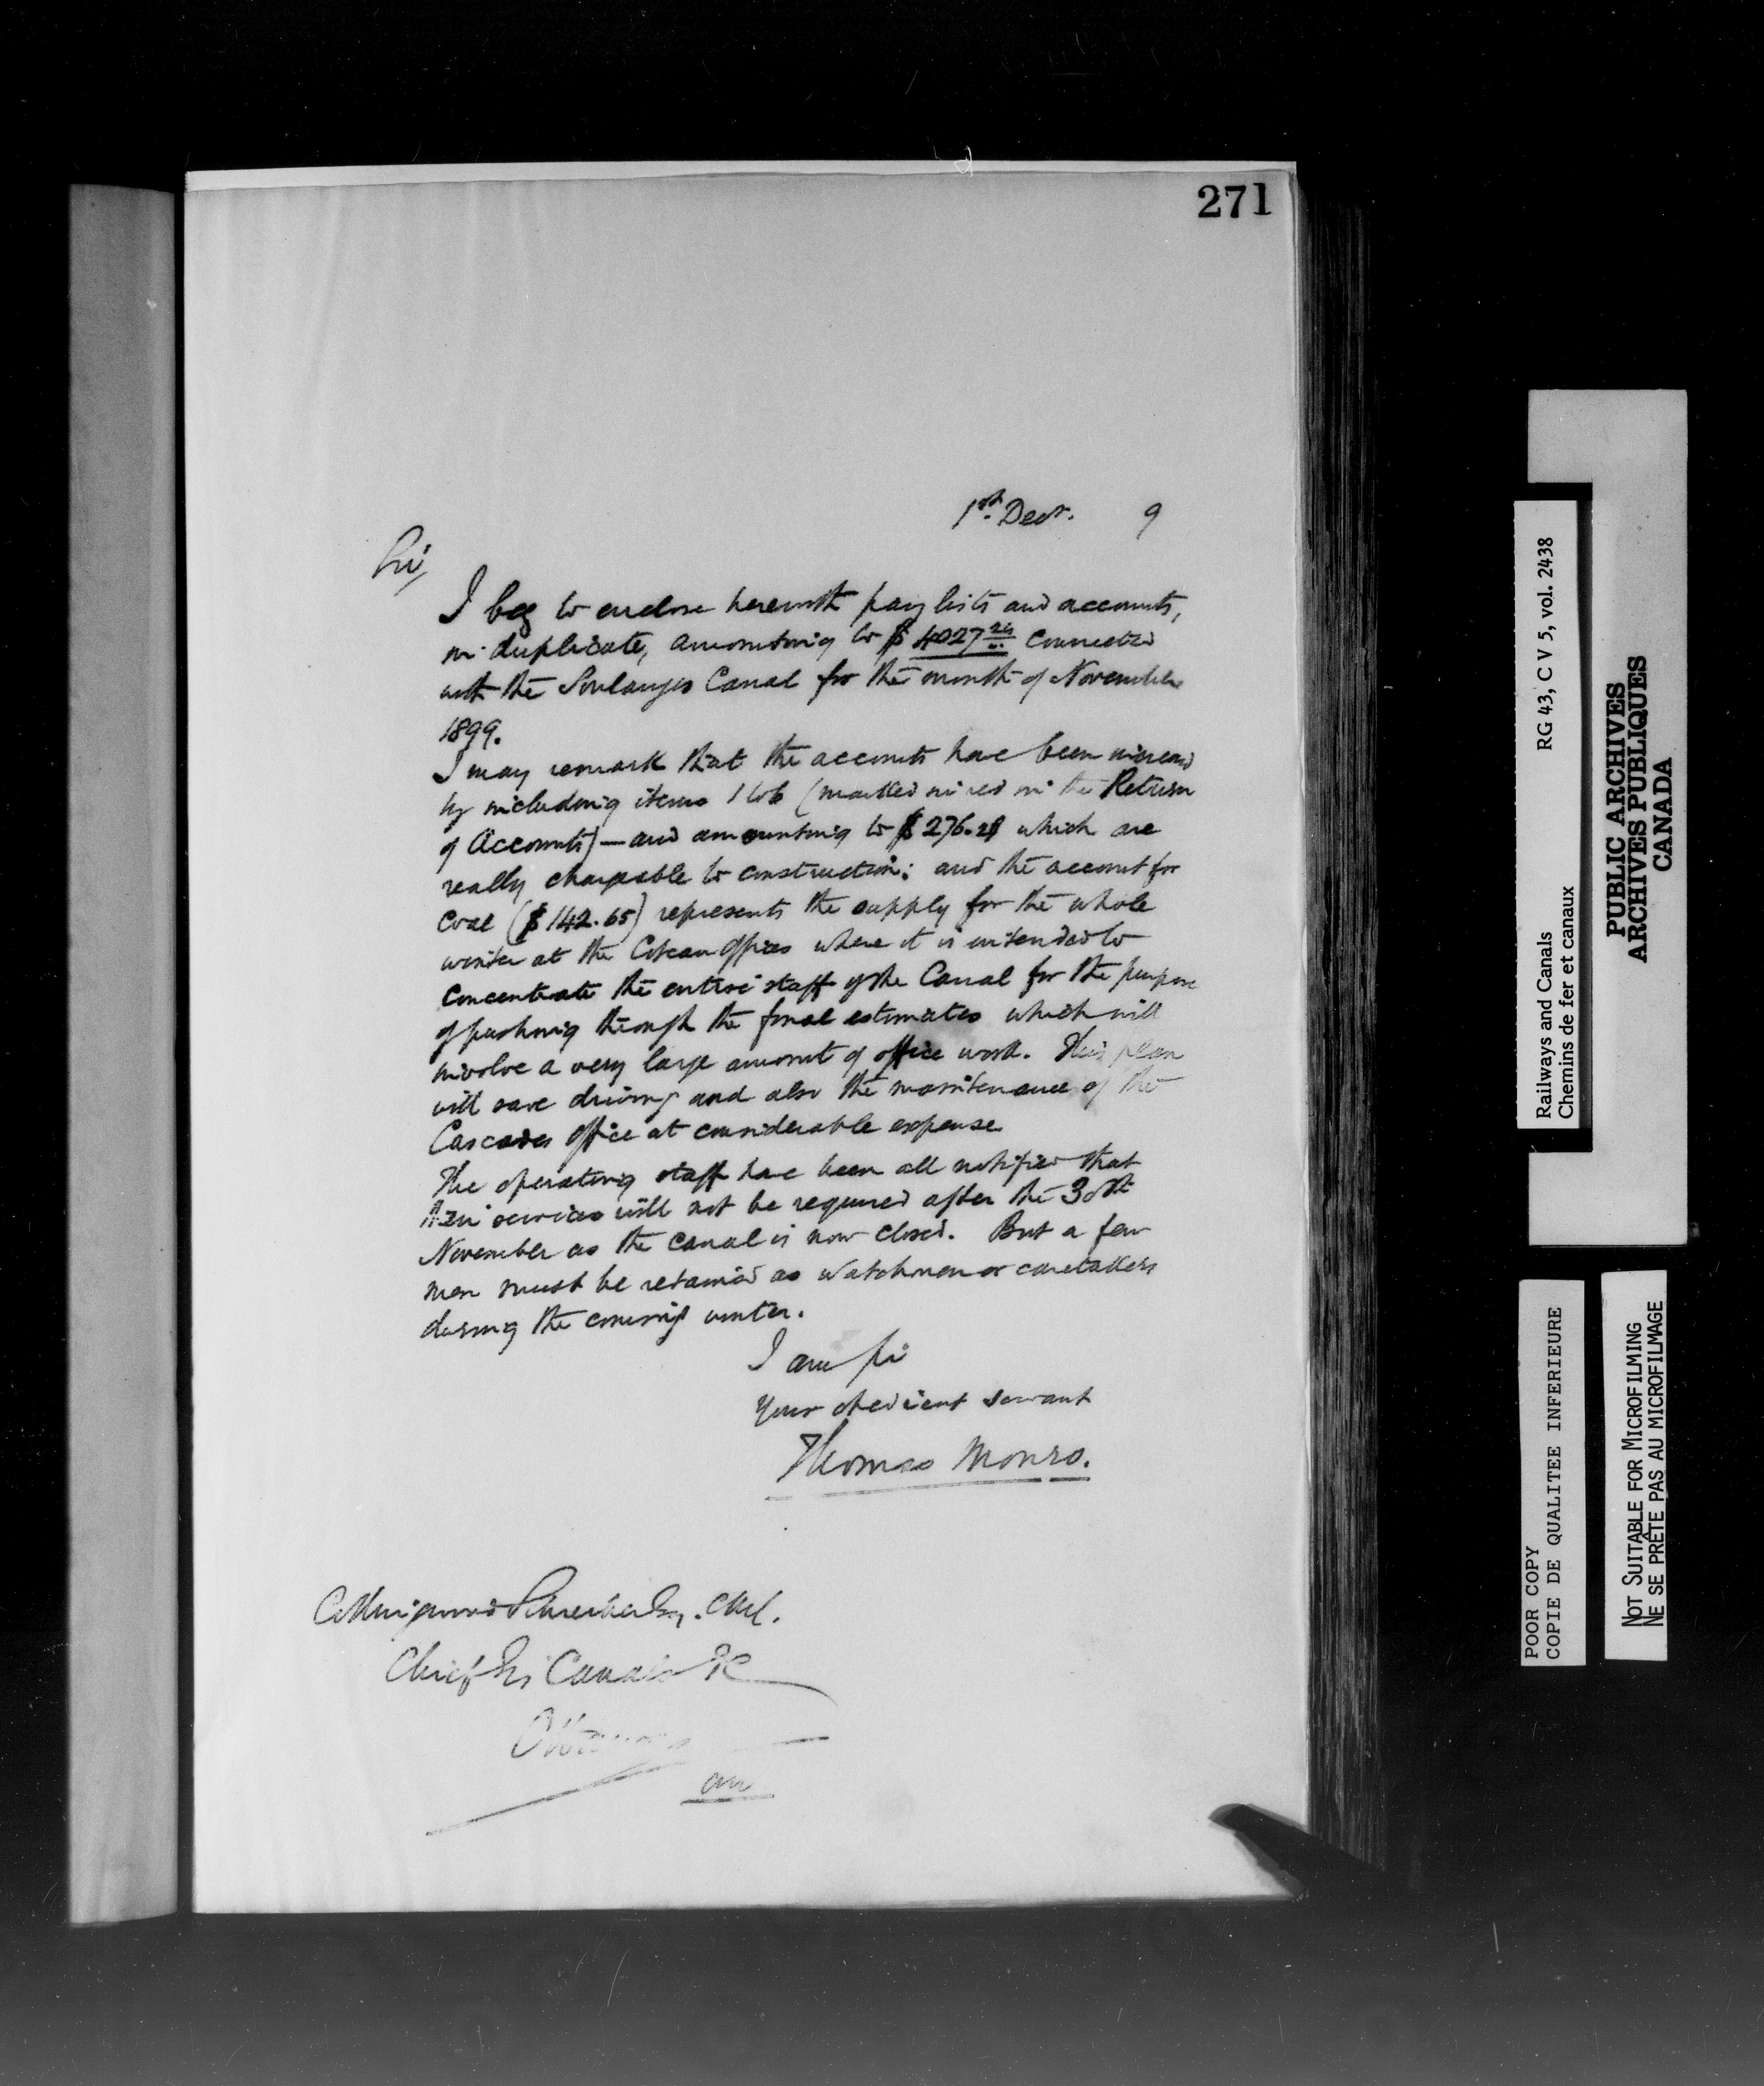 271
1st. Decr. 9
Sir,
I beg to enclose herewith pay lists and accounts,
in duplicate, amounting to $ 4027 24 connected
with the Soulanges Canal for the month of November
1899.
I may remark that the accounts have been increased
by including items 1 to 6 (marked in red in the Return
of Accounts) — and amounting to $ 276.28 which are
really chargeable to construction; and the account for
coal ($ 142.65) represents the supply for the whole
winter at the Coteau Offices where it is intended to
concentrate the entire staff of the Canal for the purpose
of pushing through the final estimates which will
involve a very large amount of office work. This plan
will save driving and also the maintenance of the
Cascades Office at considerable expense
The operating staff have been all notified that
their services will not be required after the 30th
November as the canal is now closed. But a few
men must be retained as watchmen or caretakers
during the coming winter.
I am Sir
Your obedient servant
Thomas Monro.
Collingwood Schreiber Esq. CMG.
Chief En Canals &c
Ottawa
RG 43, C V 5, vol. 2438
Railways and Canals
Chemins de fer et canaux
PUBLIC ARCHIVES
ARCHIVES PUBLIQUES
CANADA
POOR COPY
COPIE DE QUALITEE INFERIEURE
NOT SUITABLE FOR MICROFILMING
NE SE PRÊTE PAS AU MICROFILMAGE